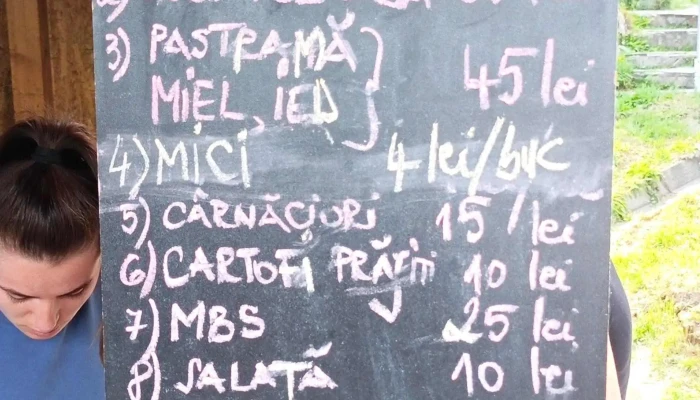 3) PASTRAMĂ
MIEL, IED } 45 lei
4) MICI 4 lei/buc
5) CÂRNĂCIORI 15 / lei
6) CARTOFI PRĂJIȚI 10 lei
7) MBS 25 lei
8) SALATĂ 10 lei